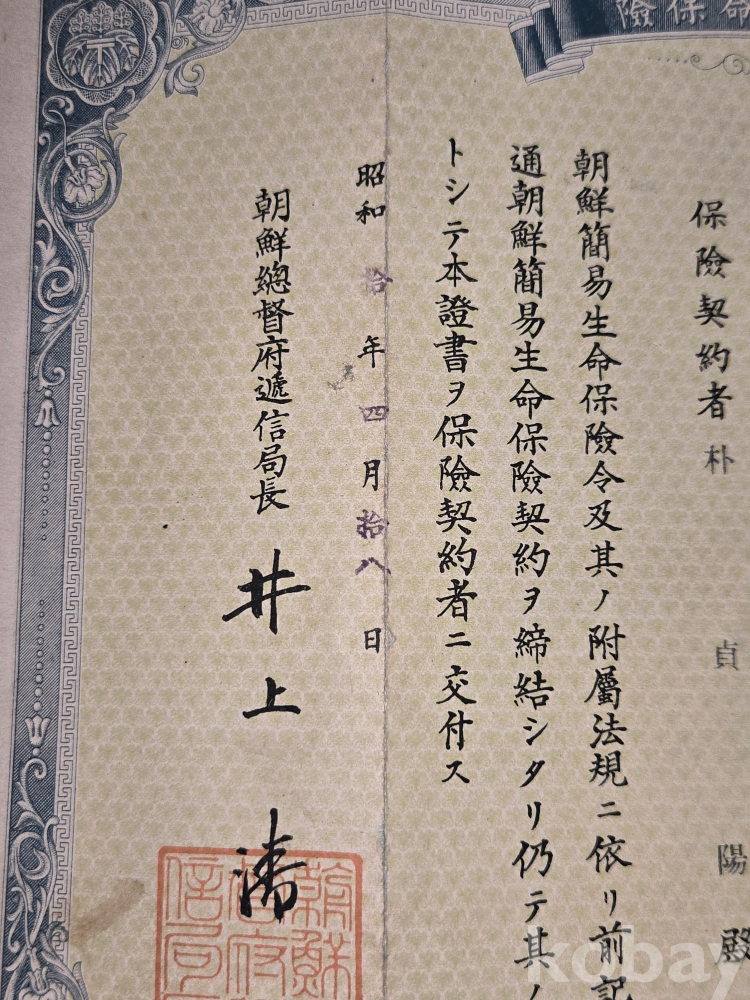 命保險
保險契約者 朴 貞 陽 殿
朝鮮簡易生命保險令及其ノ附屬法規ニ依リ前記
通朝鮮簡易生命保險契約ヲ締結シタリ仍テ其ノ
トシテ本證書ヲ保險契約者ニ交付ス
昭和拾年四月拾八日
朝鮮總督府遞信局長 井上清
kobay